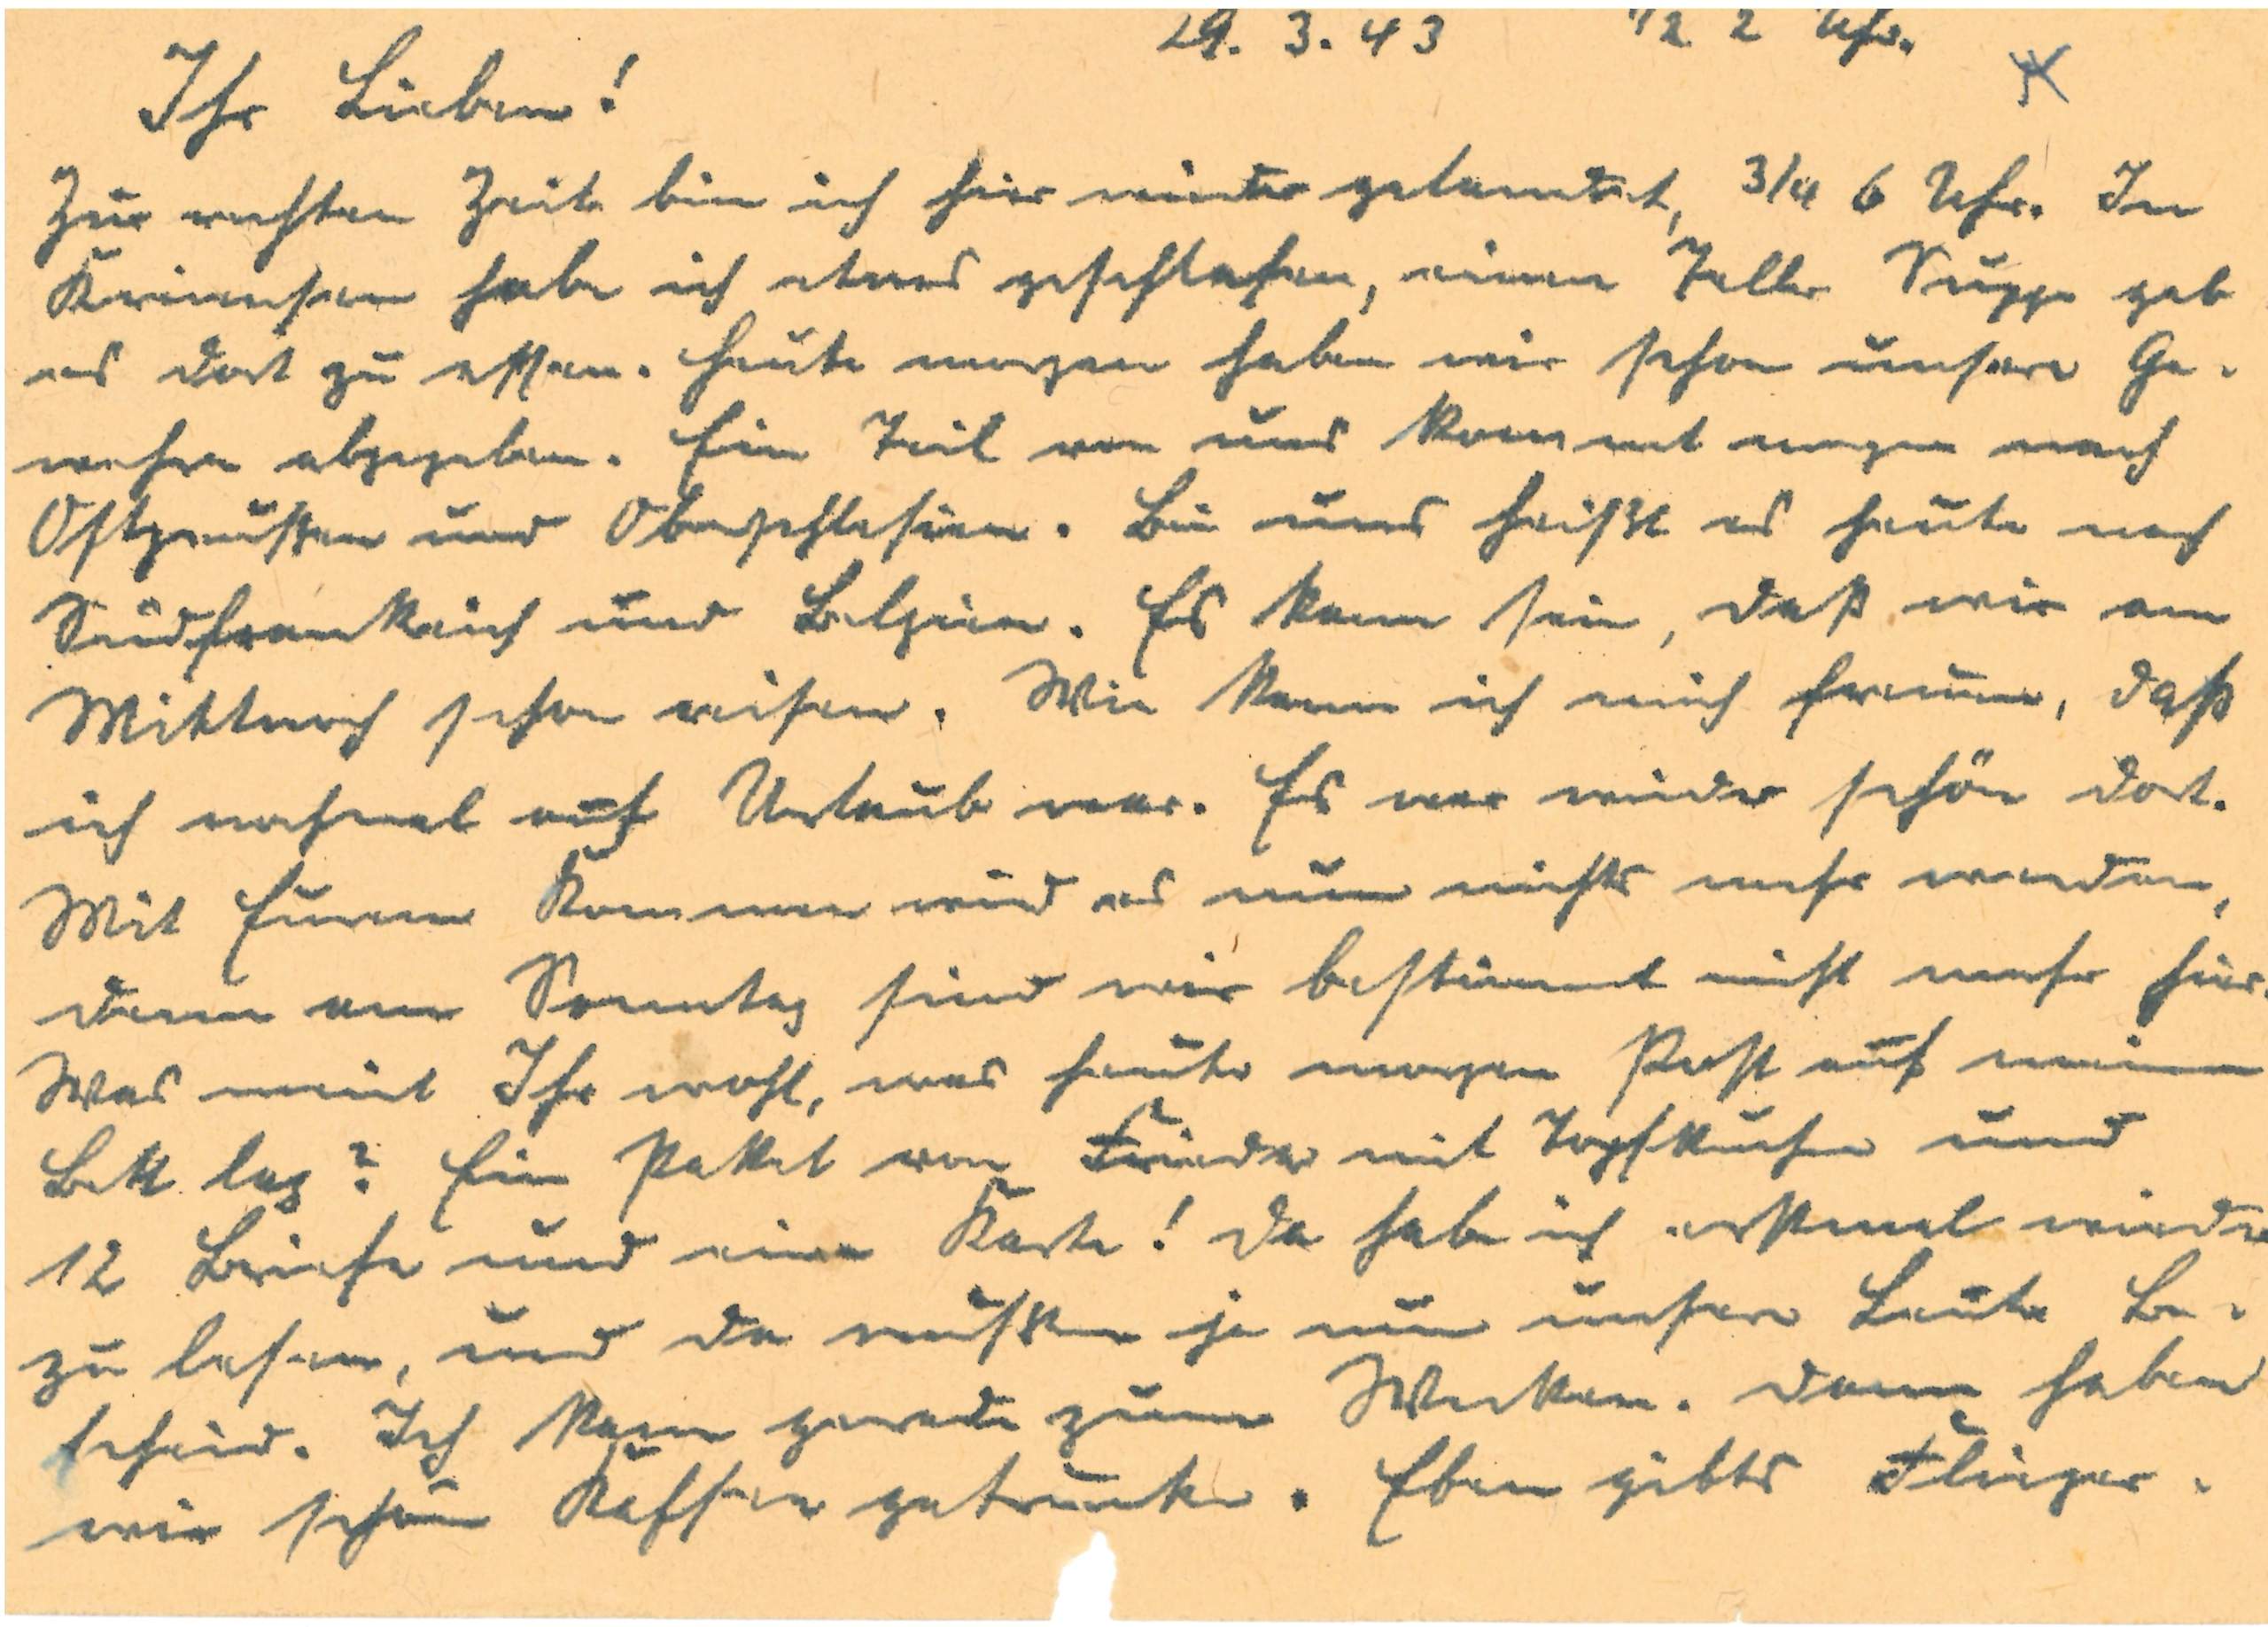 29. 3. 43 1/2 2 Uhr.
Ihr Lieben!
Zur rechten Zeit bin ich hier wieder gelandet, 3/4 6 Uhr. In
Kreiensen habe ich etwas geschlafen, einen Teller Suppe gab
es dort zu essen. Heute morgen haben wir schon unsere Ge-
wehre abgegeben. Ein Teil von uns kommt morgen nach
Ostpreußen und Oberschlesien. Bei uns heißt es heute nach
Südfrankreich und Belgien. Es kann sein, daß wir am
Mittwoch schon reisen. Wie kann ich mich freuen, daß
ich nochmal auf Urlaub war. Es war wieder schön dort.
Mit Eurem Kommen wird es nun nichts mehr werden,
denn am Sonntag sind wir bestimmt nicht mehr hier.
Was meint Ihr wohl, was heute morgen Post auf meinem
Bett lag? Ein Paket von Frieda mit Topfkuchen und
12 Briefe und eine Karte! Da habe ich erstmal wieder
zu lesen, und da wußten ja nun unsere Leute Be-
scheid. Ich kam gerade zum Wecken. Dann haben
wir schön Kaffee getrunken. Eben gibts Flieger-